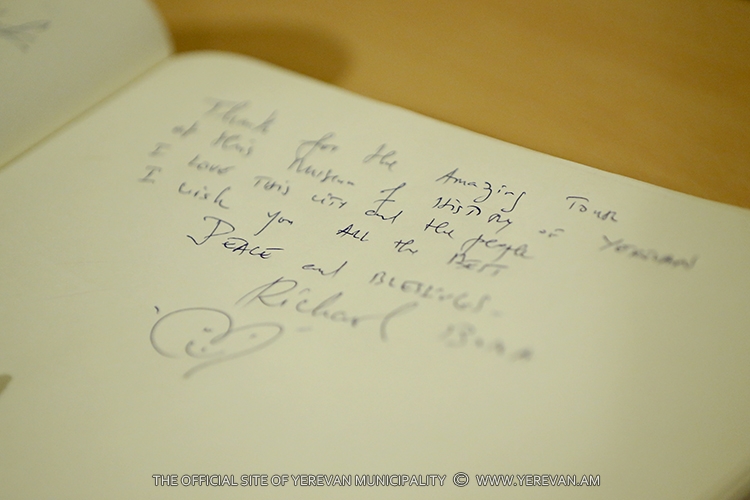 Thank for the Amazing Tour
at this Museum of History of Yerevan
I Love This city and the people
I wish you All the Best
Peace and Blessings.
Richard Bona
THE OFFICIAL SITE OF YEREVAN MUNICIPALITY © WWW.YEREVAN.AM